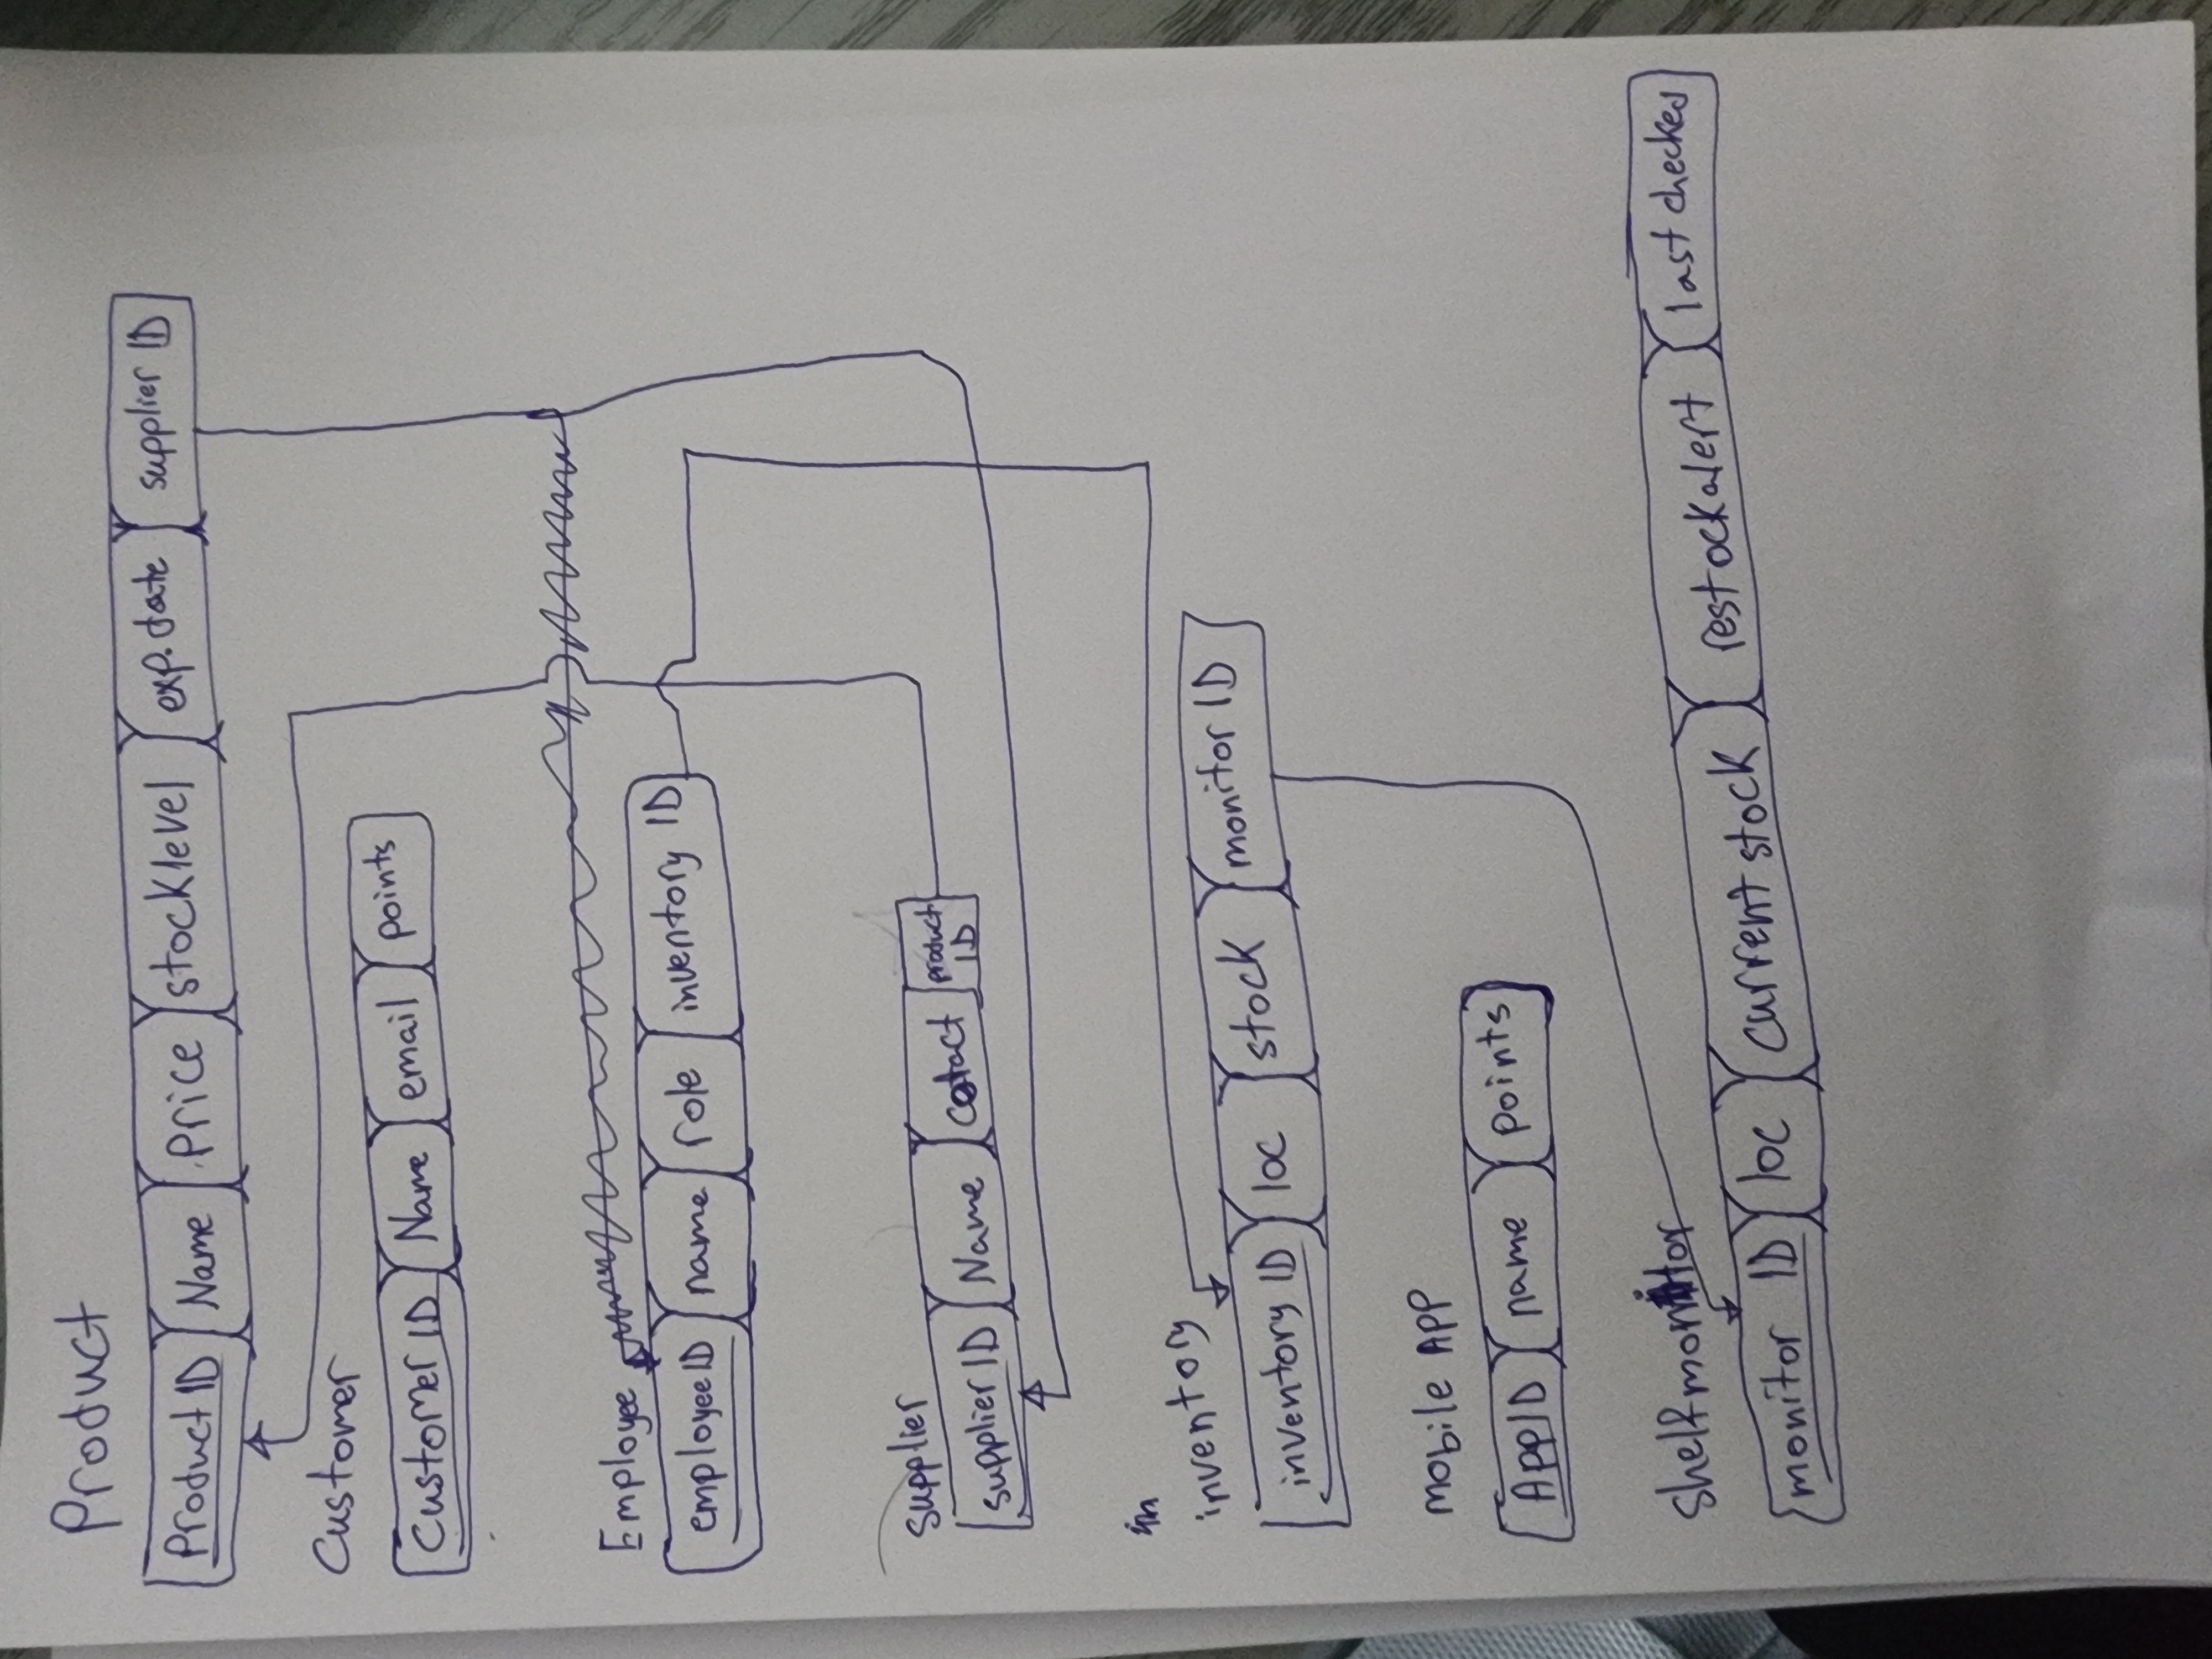 Product
Product ID Name Price stocklevel exp.date supplier ID
Customer
Customer ID Name email points
Employee
employeeID name role inventory ID
supplier
supplier ID Name cotact product ID
in
inventory
inventory ID loc stock monitor ID
mobile APP
AppID name points
shelfmonitor
monitor ID loc current stock restockalert last checked